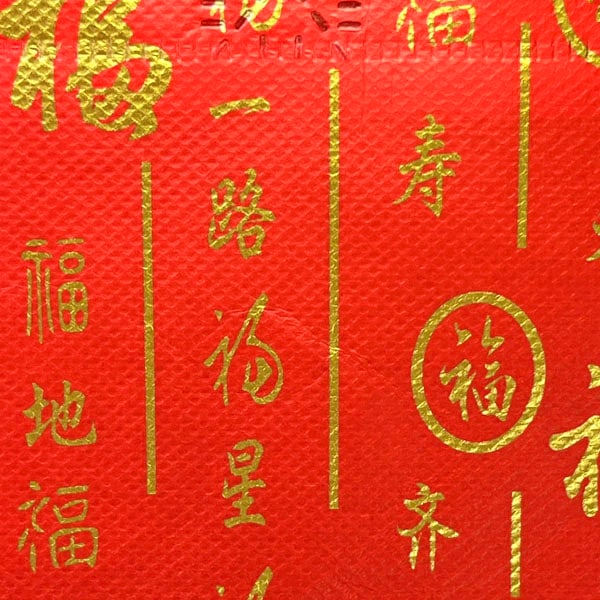 福
福地福
一路福星
福寿
福
齐